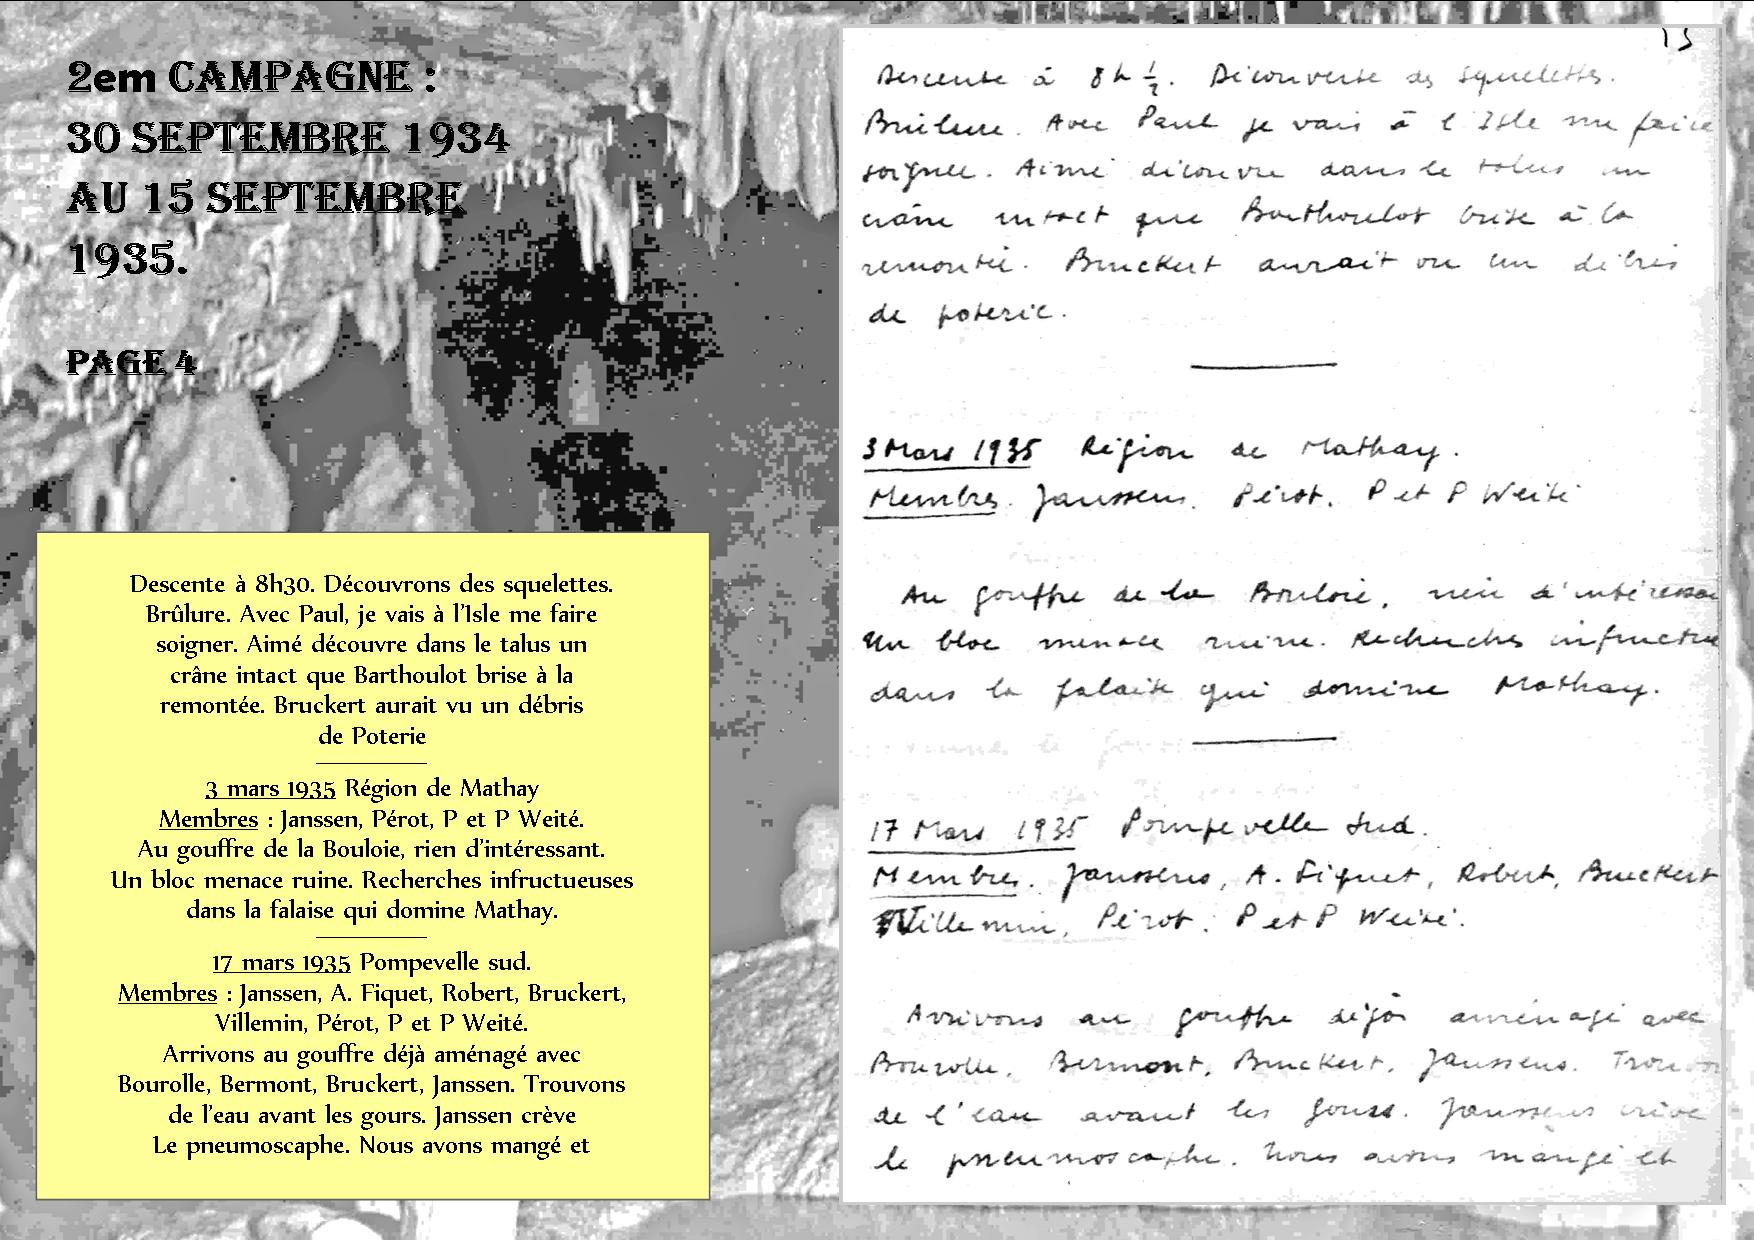 2em CAMPAGNE :
30 SEPTEMBRE 1934
AU 15 SEPTEMBRE
1935.
PAGE 4
Descente à 8h30. Découvrons des squelettes.
Brûlure. Avec Paul, je vais à l'Isle me faire
soigner. Aimé découvre dans le talus un
crâne intact que Barthoulot brise à la
remontée. Bruckert aurait vu un débris
de Poterie
3 mars 1935 Région de Mathay
Membres : Janssen, Pérot, P et P Weité.
Au gouffre de la Bouloie, rien d'intéressant.
Un bloc menace ruine. Recherches infructueuses
dans la falaise qui domine Mathay.
17 mars 1935 Pompevelle sud.
Membres : Janssen, A. Fiquet, Robert, Bruckert,
Villemin, Pérot, P et P Weité.
Arrivons au gouffre déjà aménagé avec
Bourolle, Bermont, Bruckert, Janssen. Trouvons
de l'eau avant les gours. Janssen crève
Le pneumoscaphe. Nous avons mangé et
13
Descente à 8h ½. Découverte des squelettes.
Brûlure. Avec Paul je vais à l'Isle me faire
soigner. Aimé découvre dans le talus un
crâne intact que Barthoulot brise à la
remontée. Bruckert aurait vu un débris
de poterie.
3 Mars 1935 Région de Mathay.
Membres. Janssens. Pérot. P et P Weité
Au gouffre de la Bouloie, rien d'intéressan
Un bloc menace ruine. Recherches infructu
dans la falaise qui domine Mathay.
17 Mars 1935 Pompevelle Sud.
Membres. Janssens, A. Fiquet, Robert, Bruckert
Villemin, Pérot. P et P Weité.
Arrivons au gouffre déjà aménagé avec
Bourolle, Bermont, Bruckert, Janssens. Trouvons
de l'eau avant les gours. Janssens crève
le pneumoscaphe. Nous avons mangé et